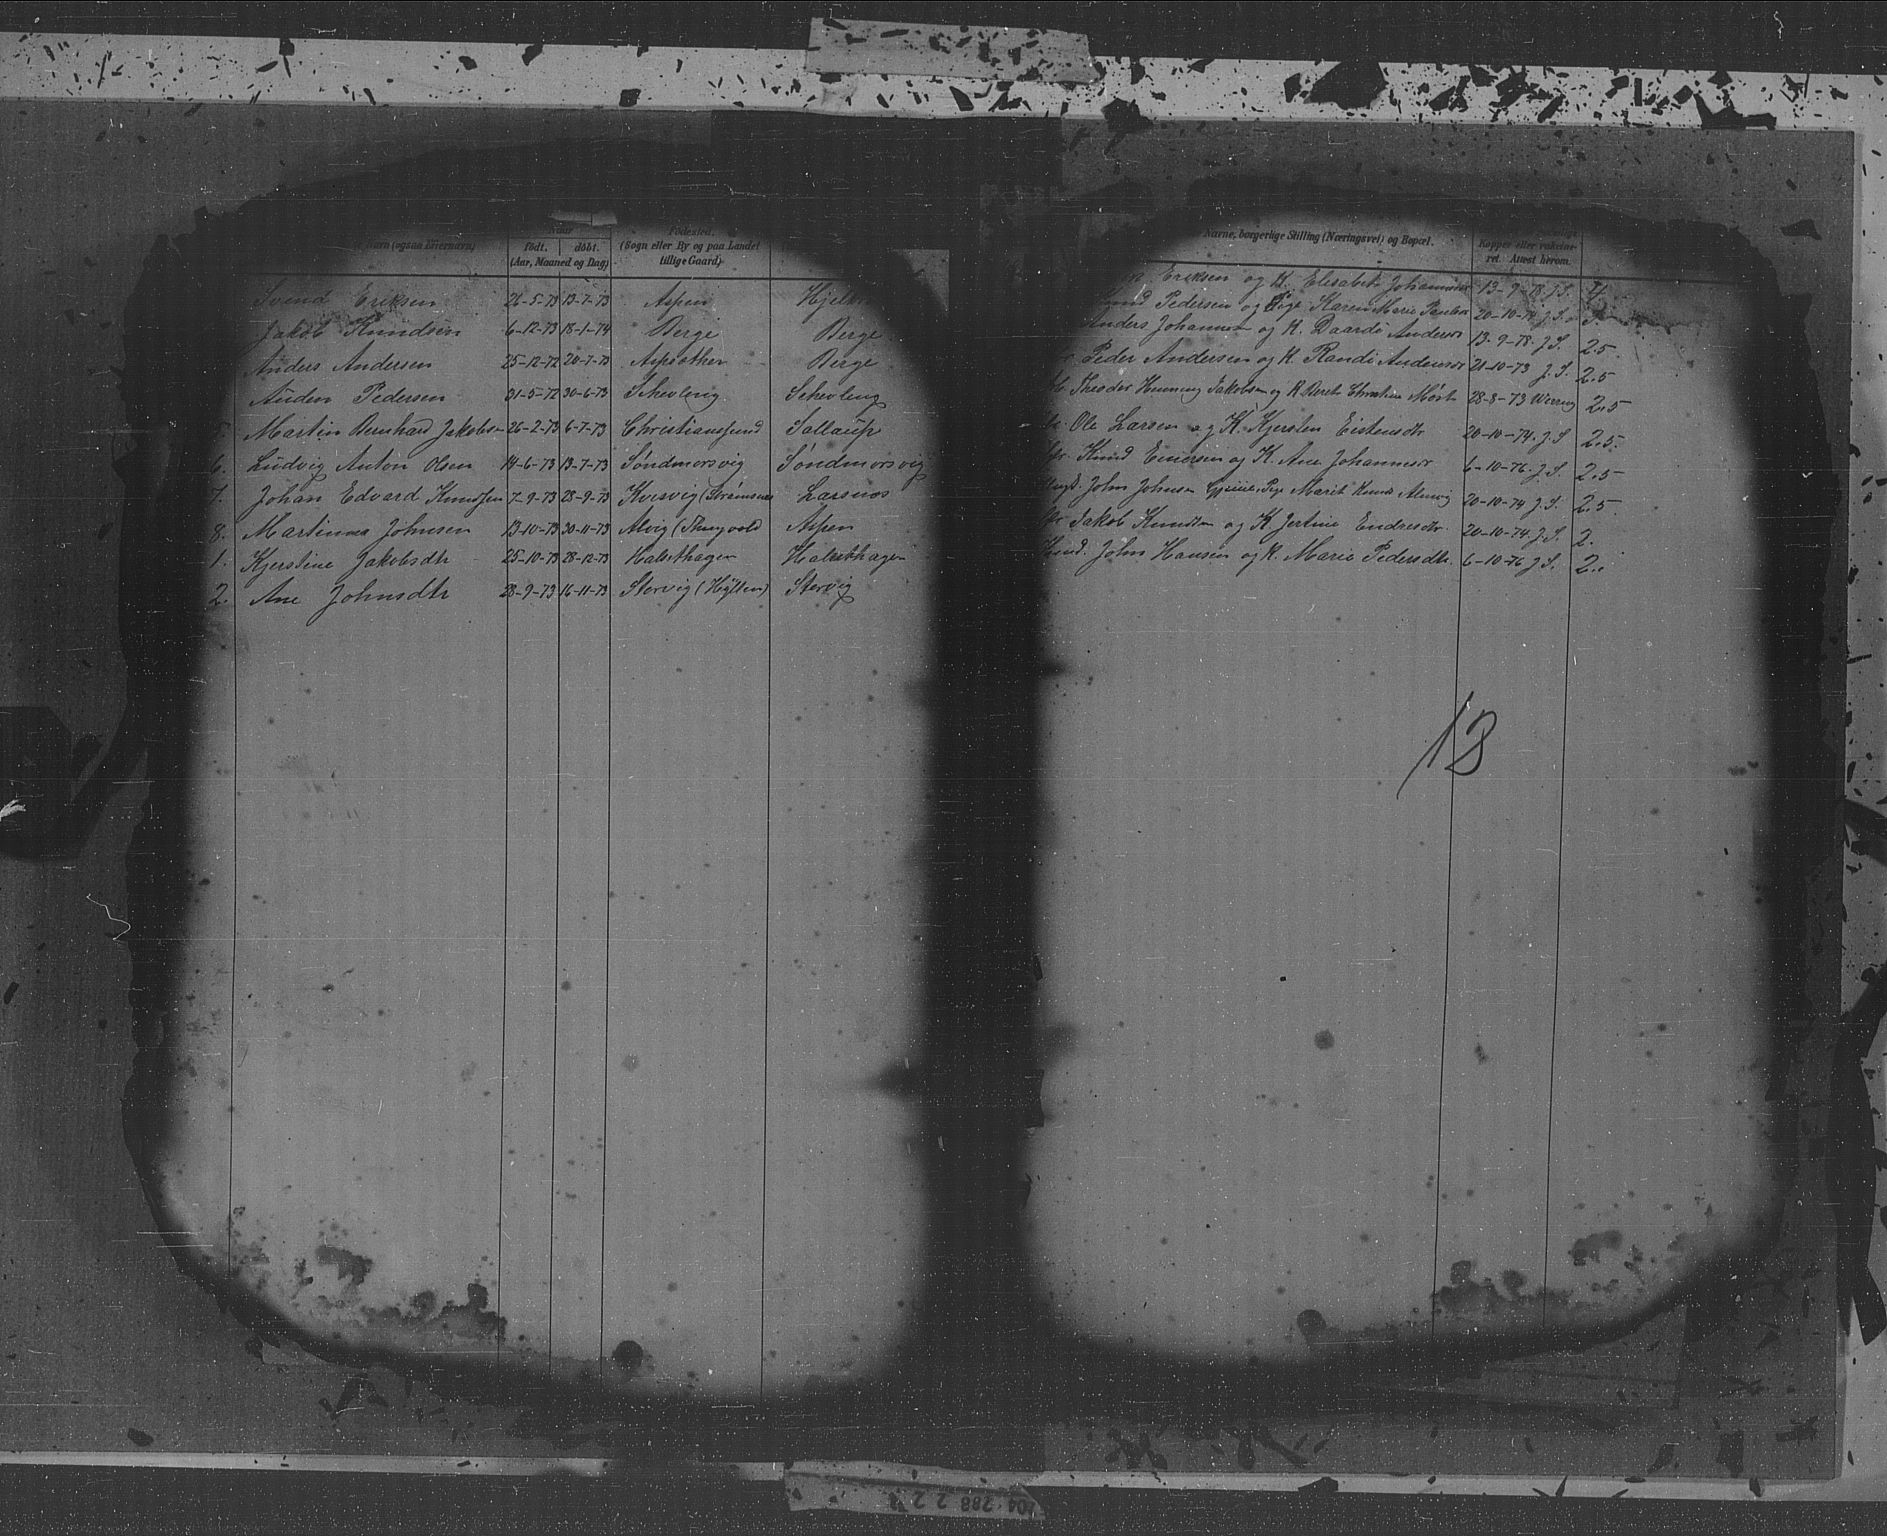 Navn (ogsaa Tilernavn) Naar født. døbt. (Aar, Maaned og Dag) Fødested. (Sogn eller By og paa Landet tillige Gaard)
Svend Eriksen 26-5-73 13-7-73 Aspen
Jakob Knudsen 6-12-73 18-1-74 Berge Berge
Anders Andersen 25-12-72 20-7-73 Berge
Auden Pedersen 31-5-72 30-6-73 Skevling Skevling
5. Martin Bernhard Jakobsen 26-2-73 6-7-73 Christianssund Sollaup
6. Ludvig Anton Olsen 14-6-73 13-7-73 Søndmorsvig Søndmorsvig
7. Johan Edvard Knudsen 7-9-73 28-9-73 Kvisvig Larsnes
8. Martinus Johnsen 13-10-73 30-11-73 Alvig Aspen
1. Kjerstine Jakobsdtr 25-10-73 28-12-73 Halsethagen Halsethagen
2. Ane Johnsdtr 28-9-73 16-11-73 Storvig Storvig
Navne, borgerlige Stilling (Næringsvei) og Bopæl. Kopper eller vakcineret. Attest herom.
Eriksen og K. Elisabeth Johannesdr 13-9-78 J.S. 4
Knud Pedersen og Pige Karen Marie 20-10-74 J.S.
Anders Johannsen og K. Andersdr 13-9-78. J.S. 2.5.
Peder Andersen og K. Randi Andersdr 21-10-73 J.S. 2.5
Theodor Henning Jakobsen og K. Beret Christine 28-8-73 2.5
Ole Larsen og K. Kjersten Eistensdtr 20-10-74. J.S 2.5.
Knud og K. Ane Johannesdr 6-10-76. J.S. 2.5
John Johnsen Pige Marit 20-10-74 J.S. 2.5.
Jakob Knudsen og K. Jertine Endresdtr. 20-10-74. J.S 2.
John Hansen og K. Marie Pedersdtr. 6-10-76 J.S. 2.
13
288 22